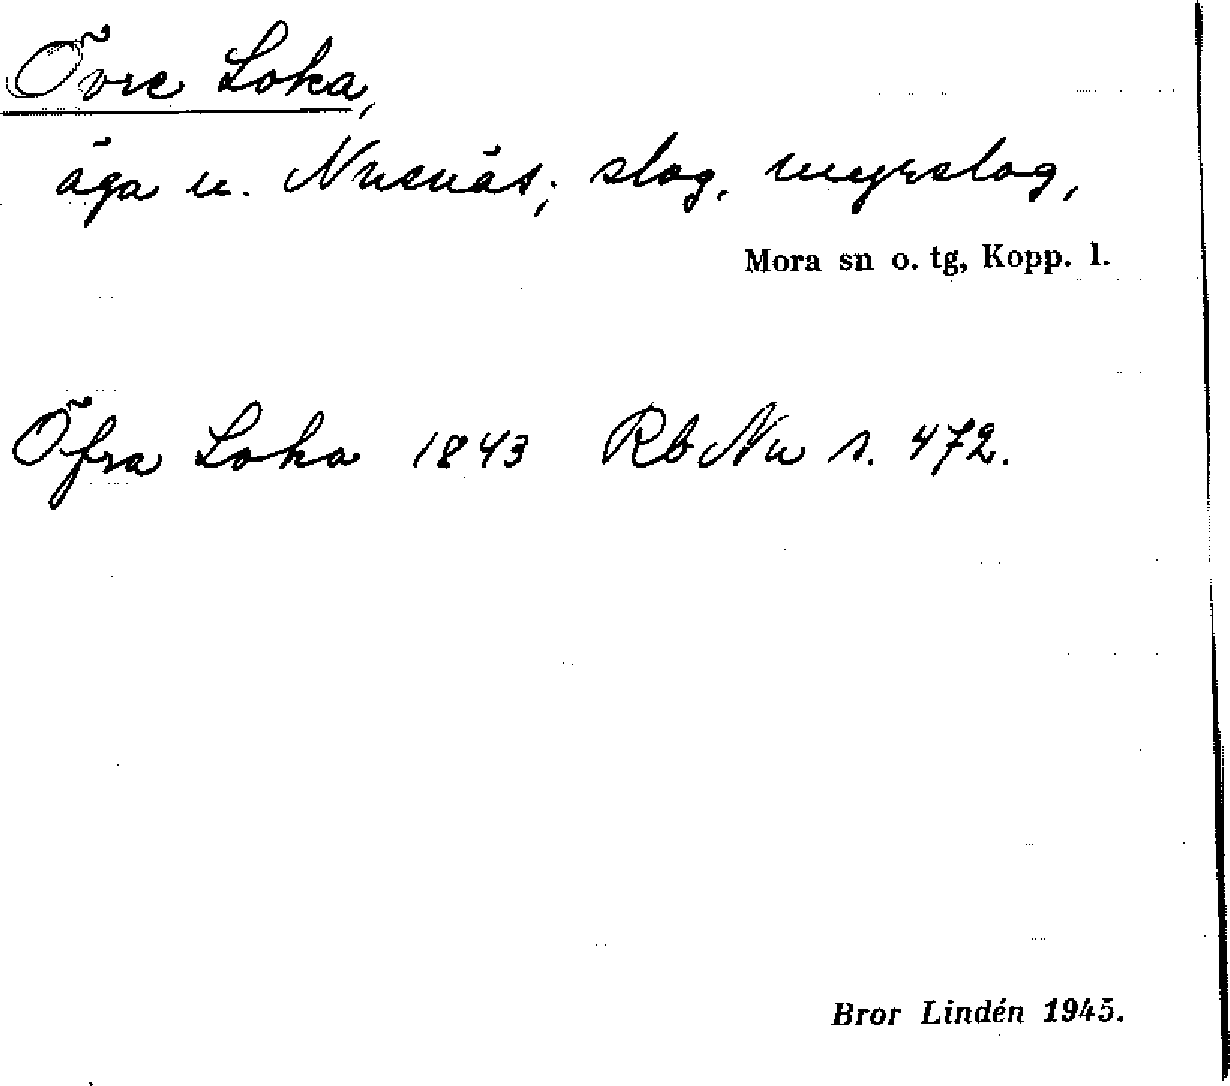 Övre Loka,
äga u. Nusnäs; slog, myrslog,
Mora sn o. tg, Kopp. l.
Öfra Loka 1843 Rb Nu s. 472.
Bror Lindén 1945.